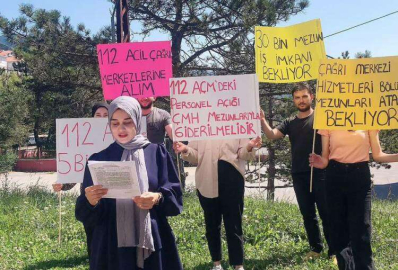 112 ACİL ÇAĞRI
MERKEZLERİNE
ALIM
30 BİN MEZUN
İŞ İMKANI
BEKLİYOR
ÇAĞRI MERKEZİ
HİZMETLERİ BÖLÜ
MEZUNLARI ATA
BEKLİYOR
112 AÇM'DEKİ
PERSONEL AÇIĞI
ÇMH MEZUNLARIYLA
GİDERİLMELİDİR
112 A
5 Bİ